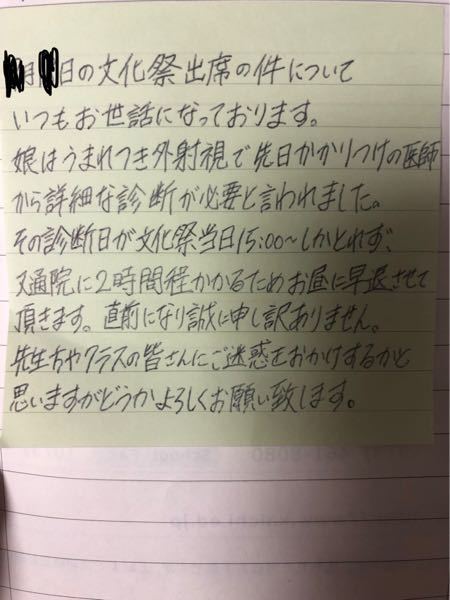 月 日の文化祭出席の件について
いつもお世話になっております。
娘はうまれつき外射視で先日かかりつけの医師
から詳細な診断が必要と言われました。
その診断日が文化祭当日15:00～しかとれず、
又通院に2時間程かかるためお昼に早退させて
頂きます。直前になり誠に申し訳ありません。
先生方やクラスの皆さんにご迷惑をおかけするかと
思いますがどうかよろしくお願い致します。